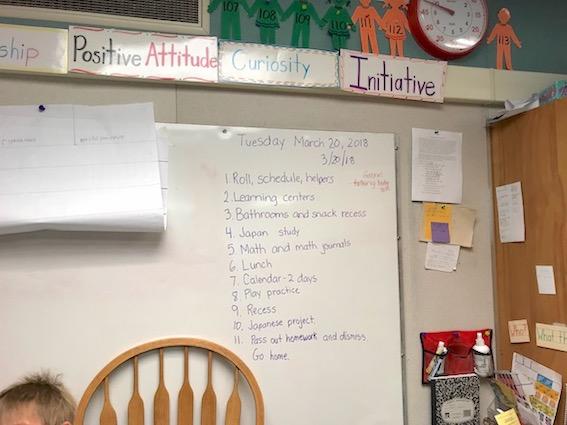 107 108 109 110 111 112 113
ship
Positive Attitude
Curiosity
Initiative
Tuesday March 20, 2018
3/20/18
1. Roll, schedule, helpers
2. Learning centers
3. Bathrooms and snack recess
4. Japan study
5. Math and math journals
6. Lunch
7. Calendar-2 days
8. Play practice
9. Recess
10. Japanese project.
11. Pass out homework and dismiss.
Go home.
Who?
What